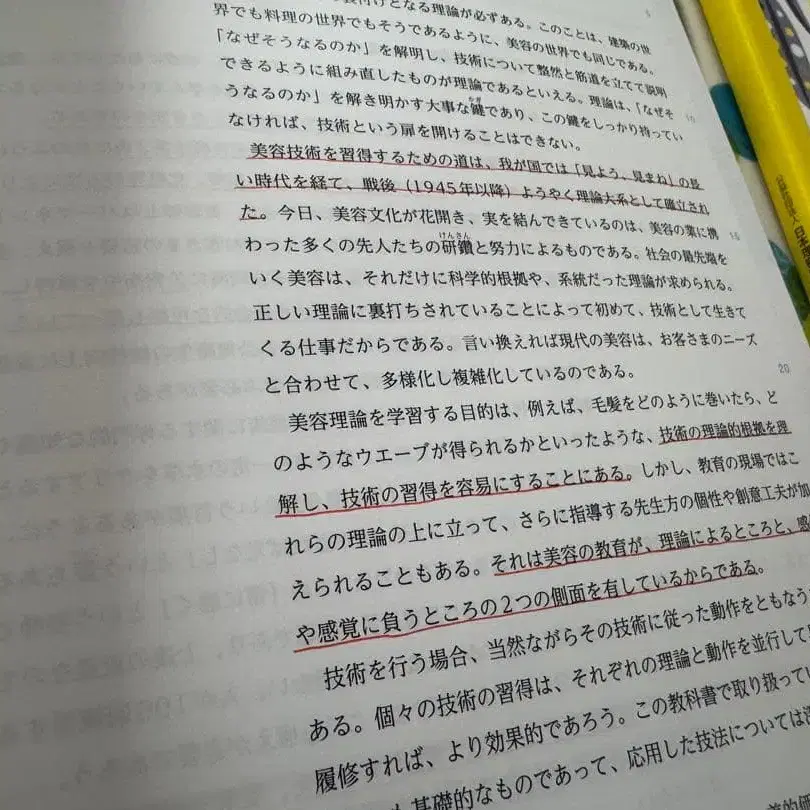 裏付けとなる理論が必ずある。このことは、建築の世
界でも料理の世界でもそうであるように、美容の世界でも同じである。
「なぜそうなるのか」を解明し、技術について整然と筋道を立てて説明
できるように組み直したものが理論であるといえる。理論は、「なぜそ
うなるのか」を解き明かす大事な鍵であり、この鍵をしっかり持ってい
なければ、技術という扉を開けることはできない。
美容技術を習得するための道は、我が国では「見よう、見まね」の長
い時代を経て、戦後(1945年以降)ようやく理論大系として確立され
た。今日、美容文化が花開き、実を結んできているのは、美容の業に携
わった多くの先人たちの研鑽と努力によるものである。社会の最先端を
いく美容は、それだけに科学的根拠や、系統だった理論が求められる。
正しい理論に裏打ちされていることによって初めて、技術として生きて
くる仕事だからである。言い換えれば現代の美容は、お客さまのニーズ
と合わせて、多様化し複雑化しているのである。
美容理論を学習する目的は、例えば、毛髪をどのように巻いたら、ど
のようなウエーブが得られるかといったような、技術の理論的根拠を理
解し、技術の習得を容易にすることにある。しかし、教育の現場ではこ
れらの理論の上に立って、さらに指導する先生方の個性や創意工夫が加
えられることもある。それは美容の教育が、理論によるところと、感
や感覚に負うところの2つの側面を有しているからである。
技術を行う場合、当然ながらその技術に従った動作をともなう
ある。個々の技術の習得は、それぞれの理論と動作を並行して
履修すれば、より効果的であろう。この教科書で取り扱って
基礎的なものであって、応用した技法については
5
10
15
20